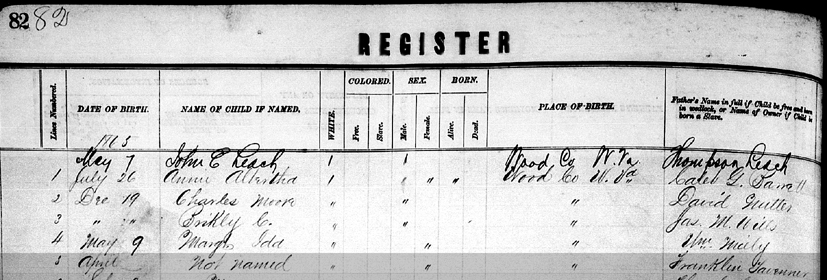 82 82
REGISTER
Lines Numbered. DATE OF BIRTH. NAME OF CHILD IF NAMED. WHITE. COLORED. Free. Slave. SEX. Male. Female. BORN. Alive. Dead. PLACE OF BIRTH. Father's Name in full if Child be free and born in wedlock, or Name of Owner if Child is born a Slave.
May 7 John E Leach 1 1 Wood Co W. Va Thompson Leach
1 July 26 Annie " " " Wood Co W. Va Caleb G.
2 Dec 19 Charles Moore " " " David Nutter
3 " " C. " " " Jas. M. Wells
4 May 9 Idd " " " Wm
5 April Not named " " " Franklin Tavenner